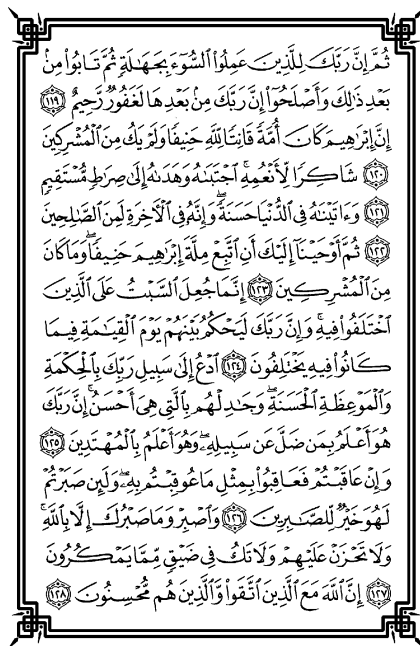 ثُمَّ إِنَّ رَبَّكَ لِلَّذِينَ عَمِلُوا۟ ٱلسُّوٓءَ بِجَهَـٰلَةٍ ثُمَّ تَابُوا۟ مِنۢ
بَعْدِ ذَٰلِكَ وَأَصْلَحُوٓا۟ إِنَّ رَبَّكَ مِنۢ بَعْدِهَا لَغَفُورٌ رَّحِيمٌ ١١٩
إِنَّ إِبْرَٰهِيمَ كَانَ أُمَّةً قَانِتًا لِّلَّهِ حَنِيفًا وَلَمْ يَكُ مِنَ ٱلْمُشْرِكِينَ
١٢٠ شَاكِرًا لِّأَنْعُمِهِ ۚ ٱجْتَبَىٰهُ وَهَدَىٰهُ إِلَىٰ صِرَٰطٍ مُّسْتَقِيمٍ
١٢١ وَءَاتَيْنَـٰهُ فِى ٱلدُّنْيَا حَسَنَةً ۖ وَإِنَّهُۥ فِى ٱلْـَٔاخِرَةِ لَمِنَ ٱلصَّـٰلِحِينَ
١٢٢ ثُمَّ أَوْحَيْنَآ إِلَيْكَ أَنِ ٱتَّبِعْ مِلَّةَ إِبْرَٰهِيمَ حَنِيفًا ۖ وَمَا كَانَ
مِنَ ٱلْمُشْرِكِينَ ١٢٣ إِنَّمَا جُعِلَ ٱلسَّبْتُ عَلَى ٱلَّذِينَ
ٱخْتَلَفُوا۟ فِيهِ ۚ وَإِنَّ رَبَّكَ لَيَحْكُمُ بَيْنَهُمْ يَوْمَ ٱلْقِيَـٰمَةِ فِيمَا
كَانُوا۟ فِيهِ يَخْتَلِفُونَ ١٢٤ ٱدْعُ إِلَىٰ سَبِيلِ رَبِّكَ بِٱلْحِكْمَةِ
وَٱلْمَوْعِظَةِ ٱلْحَسَنَةِ ۖ وَجَـٰدِلْهُم بِٱلَّتِى هِىَ أَحْسَنُ ۚ إِنَّ رَبَّكَ
هُوَ أَعْلَمُ بِمَن ضَلَّ عَن سَبِيلِهِۦ ۖ وَهُوَ أَعْلَمُ بِٱلْمُهْتَدِينَ ١٢٥
وَإِنْ عَاقَبْتُمْ فَعَاقِبُوا۟ بِمِثْلِ مَا عُوقِبْتُم بِهِۦ ۖ وَلَئِن صَبَرْتُمْ
لَهُوَ خَيْرٌ لِّلصَّـٰبِرِينَ ١٢٦ وَٱصْبِرْ وَمَا صَبْرُكَ إِلَّا بِٱللَّهِ ۚ
وَلَا تَحْزَنْ عَلَيْهِمْ وَلَا تَكُ فِى ضَيْقٍ مِّمَّا يَمْكُرُونَ
١٢٧ إِنَّ ٱللَّهَ مَعَ ٱلَّذِينَ ٱتَّقَوا۟ وَّٱلَّذِينَ هُم مُّحْسِنُونَ ١٢٨